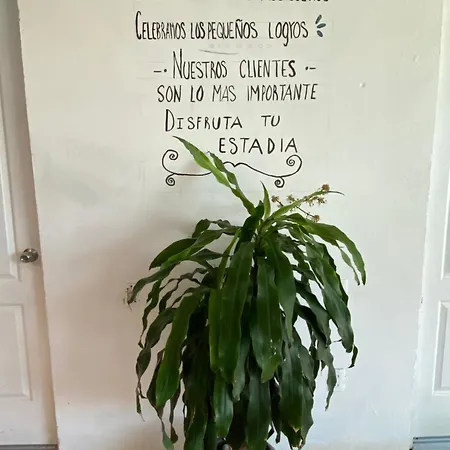 CELEBRAMOS LOS PEQUEÑOS LOGROS
- NUESTROS CLIENTES -
SON LO MAS IMPORTANTE
DISFRUTA TU
ESTADIA